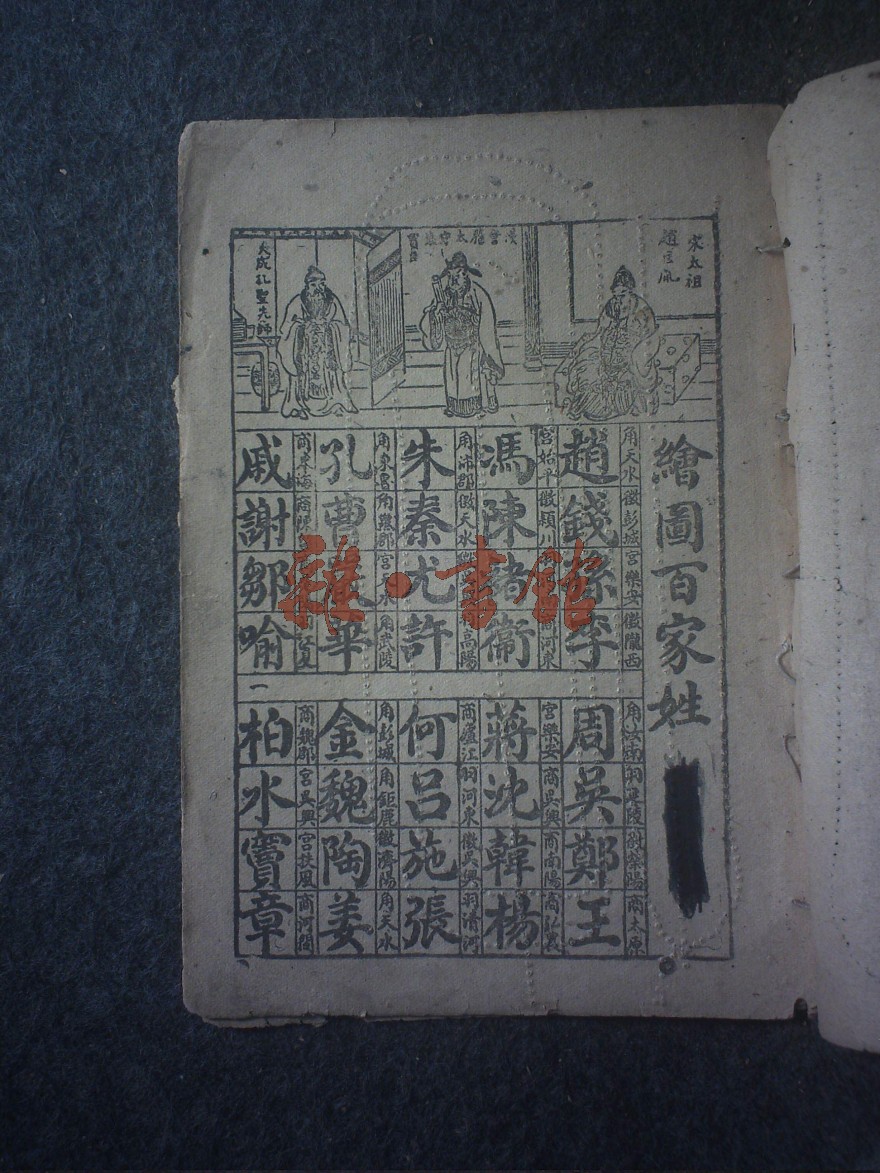 宋太祖
趙匡胤
大成孔聖先師
繪圖百家姓
趙錢孫李
角天水徵彭城宮樂安徵隴西
周吳鄭王
角汝南羽 陵 滎陽商太原
馮陳褚衛
宮始平徵潁川 河東
蔣沈韓楊
宮樂安商吳興商南陽商弘農
朱秦尤許
角沛郡徵天水 高陽
何呂施張
商廬江羽河東徵吳興羽清河
孔曹 華
角東魯角 郡宮天水角武陵
金魏陶姜
角彭城角鉅鹿徵濟陽角天水
戚謝鄒喻
商東海商陳 江夏
柏水竇章
商魏郡宮吳興宮扶風商河間
一
雜·書館